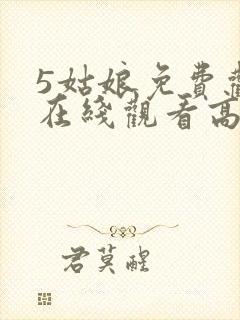 5姑娘免費
在綫觀看高
君莫醒